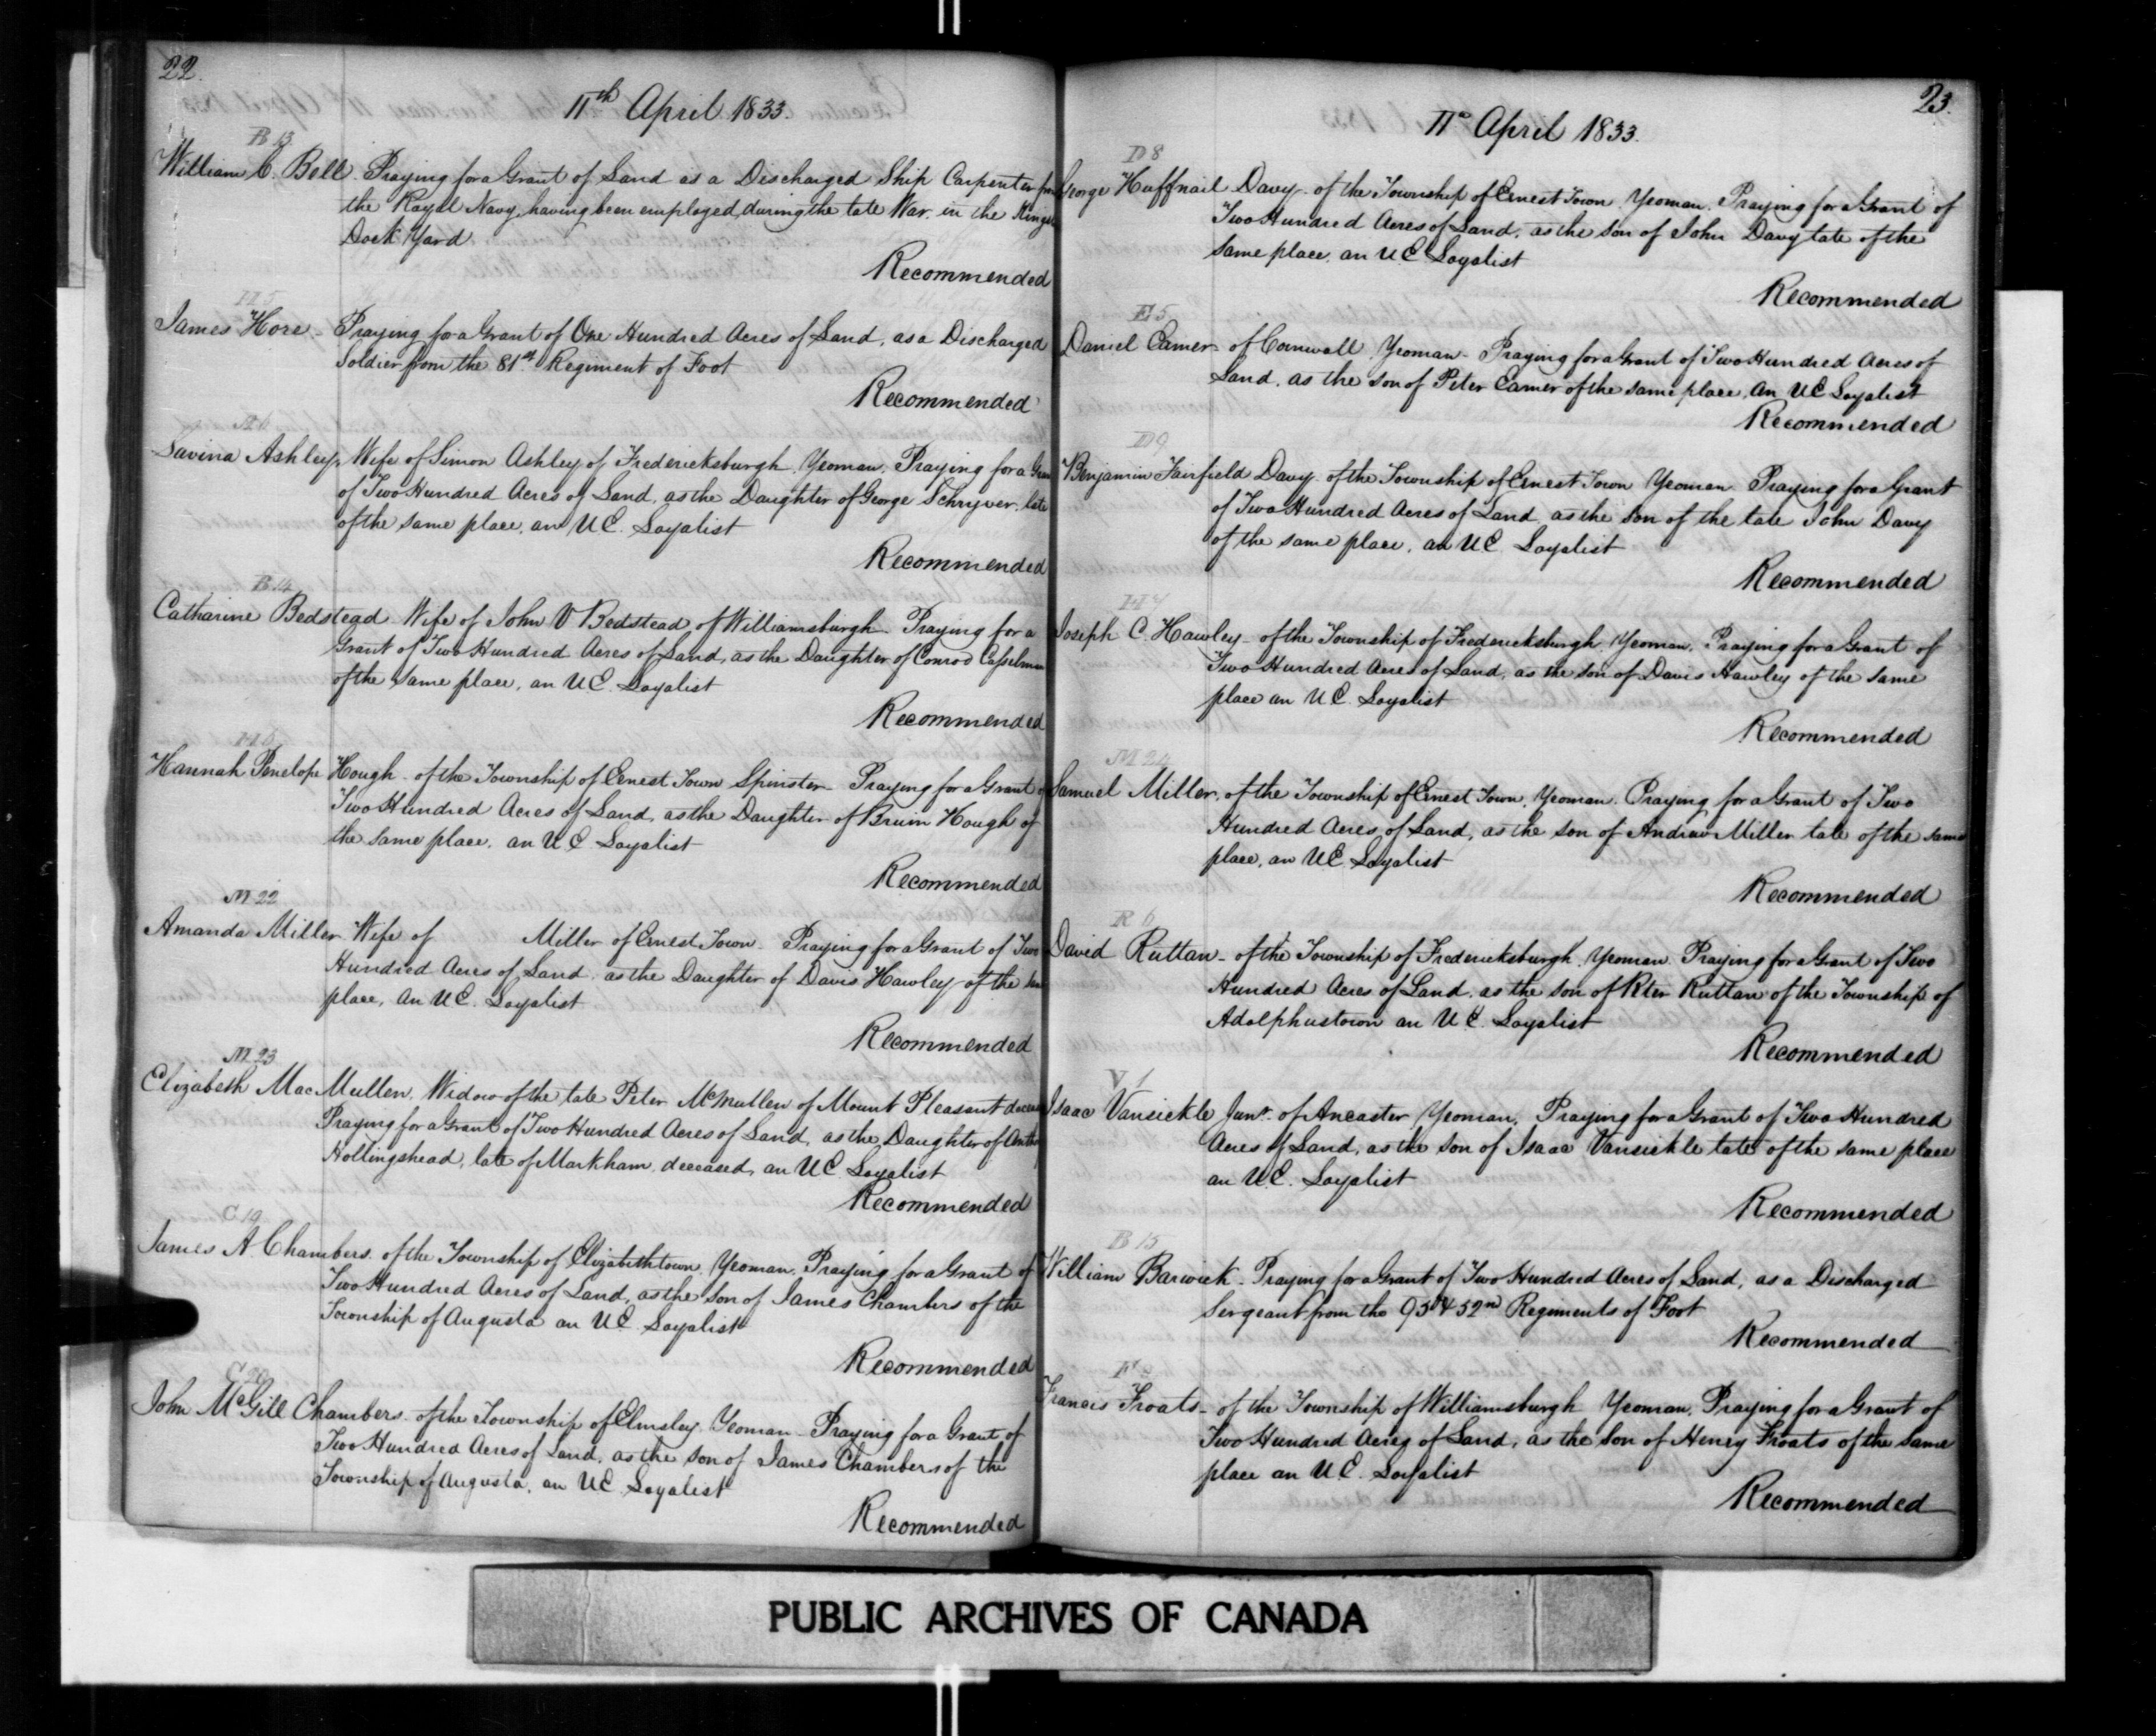 22.
11th April 1833.
B 13
William C. Bell. Praying for a Grant of Land as a Discharged Ship Carpenter from
the Royal Navy, having been employed, during the late War, in the
Dock Yard
Recommended
H 5
James Hore. Praying for a Grant of One Hundred Acres of Land, as a Discharged
Soldier from the 81st Regiment of Foot
Recommended
Savina Ashley, Wife of Simon Ashley, of Fredericksburgh, Yeoman, Praying for a
of Two Hundred Acres of Land, as the Daughter of George Schryver, late
of the same place, an U.E. Loyalist
Recommended
B 14
Catharine Bedstead Wife of John V Bedstead, of Williamsburgh Praying for a
Grant of Two Hundred Acres of Land, as the Daughter of Conrod Casselman
of the same place, an U.E. Loyalist
Recommended
H 6
Hannah Penelope Hough of the Township of Ernest Town Spinster Praying for a Grant of
Two Hundred Acres of Land, as the Daughter of Bruin Hough of
the same place, an U.E. Loyalist
Recommended
M 22
Amanda Miller Wife of Miller of Ernest Town Praying for a Grant of Two
Hundred Acres of Land as the Daughter of Davis Hawley of the
place, An U.E. Loyalist
Recommended
M 23
Elizabeth MacMullen, Widow of the late Peter McMullen of Mount Pleasant
Praying for a Grant of Two Hundred Acres of Land, as the Daughter of
Hollingshead, late of Markham, deceased, an U.E. Loyalist
Recommended
C 19
James A Chambers. of the Township of Elizabethtown, Yeoman, Praying for a Grant of
Two Hundred Acres of Land, as the Son of James Chambers of the
Township of Augusta an U.E. Loyalist
Recommended
C 20
John McGill Chambers of the Township of Elmsley, Yeoman Praying for a Grant of
Two Hundred Acres of Land, as the Son of James Chambers of the
Township of Augusta, an U.E. Loyalist
Recommended
23.
11th April 1833.
D 8
George Huffnail Davy of the Township of Ernest Town, Yeoman, Praying for a Grant of
Two Hundred Acres of Land, as the Son of John Davy late of the
same place, an U.E. Loyalist
Recommended
E 5
Daniel Eamer of Cornwall Yeoman Praying for a Grant of Two Hundred Acres of
Land, as the Son of Peter Eamer of the same place, an U.E Loyalist
Recommended
D 9
Benjamin Fairfield Davy of the Township of Ernest Town Yeoman Praying for a Grant
of Two Hundred Acres of Land, as the Son of the late John Davy
of the same place, an U.E. Loyalist
Recommended
H 7
Joseph C. Hawley of the Township of Fredericksburgh, Yeoman, Praying for a Grant of
Two Hundred Acres of Land, as the Son of Davis Hawley of the same
place an U.E. Loyalist
Recommended
M 24
Samuel Miller, of the Township of Ernest Town, Yeoman. Praying for a Grant of Two
Hundred Acres of Land, as the Son of Andrew Miller late of the same
place, an U.E. Loyalist
Recommended
R 6
David Ruttan of the Township of Fredericksburgh, Yeoman Praying for a Grant of Two
Hundred Acres of Land, as the Son of Peter Ruttan of the Township of
Adolphustown an U.E. Loyalist
Recommended
V 1
Isaac Vansickle Junr. of Ancaster Yeoman, Praying for a Grant of Two Hundred
Acres of Land, as the Son of Isaac Vansickle late of the same place
an U.E. Loyalist
Recommended
B 15
William Barwick Praying for a Grant of Two Hundred Acres of Land, as a Discharged
Sergeant from the 95th & 52nd Regiments of Foot
Recommended
Francis Froats of the Township of Williamsburgh Yeoman. Praying for a Grant of
Two Hundred Acres of Land, as the Son of Henry Froats of the same
place an U.E. Loyalist
Recommended
PUBLIC ARCHIVES OF CANADA